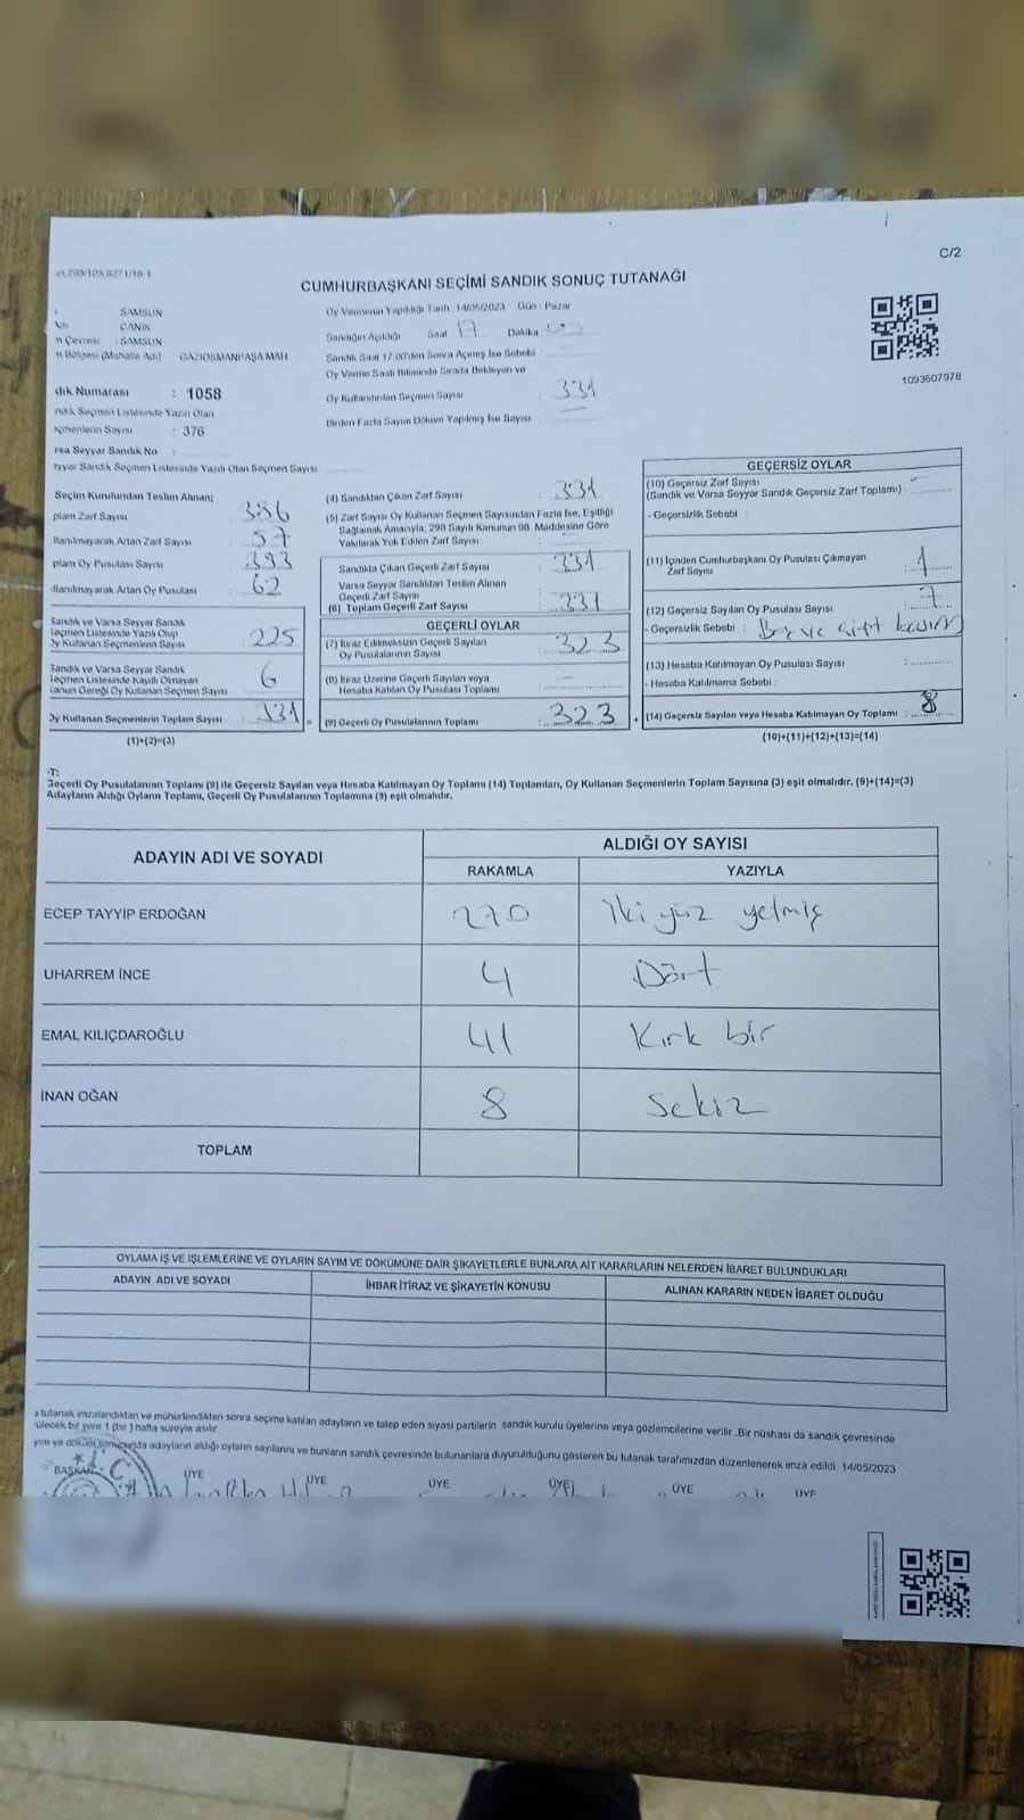 C/2
CUMHURBAŞKANI SEÇİMİ SANDIK SONUÇ TUTANAĞI
SAMSUN
CANİK
n Çevresi : SAMSUN
n Bölgesi (Mahalle Adı) GAZİOSMANPAŞA MAH.
dık Numarası : 1058
ndık Seçmen Listesinde Yazılı Olan
eçmenlerin Sayısı : 376
rsa Seyyar Sandık No
yyar Sandık Seçmen Listesinde Yazılı Olan Seçmen Sayısı
Oy Vermenin Yapıldığı Tarih 14/05/2023 Gün : Pazar
Sandığın Açıldığı Saat 17 Dakika
Sandık Saat 17.00'den Sonra Açılmış İse Sebebi
Oy Verme Saati Bitiminde Sırada Bekleyen ve
Oy Kullandırılan Seçmen Sayısı 331
Birden Fazla Sayım Döküm Yapılmış İse Sayısı
1093607978
Seçim Kurulundan Teslim Alınan;
plam Zarf Sayısı 386
llanılmayarak Artan Zarf Sayısı 57
plam Oy Pusulası Sayısı 393
llanılmayarak Artan Oy Pusulası 62
Sandık ve Varsa Seyyar Sandık
Seçmen Listesinde Yazılı Olup
Oy Kullanan Seçmenlerin Sayısı 225
Sandık ve Varsa Seyyar Sandık
Seçmen Listesinde Kayıtlı Olmayan
Kanun Gereği Oy Kullanan Seçmen Sayısı 6
Oy Kullanan Seçmenlerin Toplam Sayısı 331
(1)+(2)=(3)
(4) Sandıktan Çıkan Zarf Sayısı : 331
(5) Zarf Sayısı Oy Kullanan Seçmen Sayısından Fazla İse, Eşitliği
Sağlamak Amacıyla, 298 Sayılı Kanunun 98. Maddesine Göre
Yakılarak Yok Edilen Zarf Sayısı
Sandıkta Çıkan Geçerli Zarf Sayısı : 331
Varsa Seyyar Sandıktan Teslim Alınan
Geçerli Zarf Sayısı
(6) Toplam Geçerli Zarf Sayısı : 331
GEÇERLİ OYLAR
(7) İtiraz Edilmeksizin Geçerli Sayılan
Oy Pusulalarının Sayısı : 323
(8) İtiraz Üzerine Geçerli Sayılan veya
Hesaba Katılan Oy Pusulası Toplamı
(9) Geçerli Oy Pusulalarının Toplamı : 323
GEÇERSİZ OYLAR
(10) Geçersiz Zarf Sayısı
(Sandık ve Varsa Seyyar Sandık Geçersiz Zarf Toplamı)
- Geçersizlik Sebebi :
(11) İçinden Cumhurbaşkanı Oy Pusulası Çıkmayan
Zarf Sayısı : 1
(12) Geçersiz Sayılan Oy Pusulası Sayısı 7
- Geçersizlik Sebebi : Boş ve çift basım
(13) Hesaba Katılmayan Oy Pusulası Sayısı :
- Hesaba Katılmama Sebebi :
(14) Geçersiz Sayılan veya Hesaba Katılmayan Oy Toplamı : 8
(10)+(11)+(12)+(13)=(14)
T:
Geçerli Oy Pusulalarının Toplamı (9) ile Geçersiz Sayılan veya Hesaba Katılmayan Oy Toplamı (14) Toplamları, Oy Kullanan Seçmenlerin Toplam Sayısına (3) eşit olmalıdır. (9)+(14)=(3)
Adayların Aldığı Oyların Toplamı, Geçerli Oy Pusulalarının Toplamına (9) eşit olmalıdır.
ADAYIN ADI VE SOYADI ALDIĞI OY SAYISI
RAKAMLA YAZIYLA
ECEP TAYYİP ERDOĞAN 270 İki yüz yetmiş
UHARREM İNCE 4 Dört
EMAL KILIÇDAROĞLU 41 Kırk bir
İNAN OĞAN 8 Sekiz
TOPLAM
OYLAMA İŞ VE İŞLEMLERİNE VE OYLARIN SAYIM VE DÖKÜMÜNE DAİR ŞİKAYETLERLE BUNLARA AİT KARARLARIN NELERDEN İBARET BULUNDUKLARI
ADAYIN ADI VE SOYADI İHBAR İTİRAZ VE ŞİKAYETİN KONUSU ALINAN KARARIN NEDEN İBARET OLDUĞU
tutanak imzalandıktan ve mühürlendikten sonra seçime katılan adayların ve talep eden siyasi partilerin sandık kurulu üyelerine veya gözlemcilerine verilir. Bir nüshası da sandık çevresinde
ülecek bir yere 1 (bir) hafta süreyle asılır
yım ve döküm sonucunda adayların aldığı oyların sayılarını ve bunların sandık çevresinde bulunanlara duyurulduğunu gösteren bu tutanak tarafımızdan düzenlenerek imza edildi. 14/05/2023
BAŞKAN ÜYE ÜYE ÜYE ÜYE ÜYE ÜYE